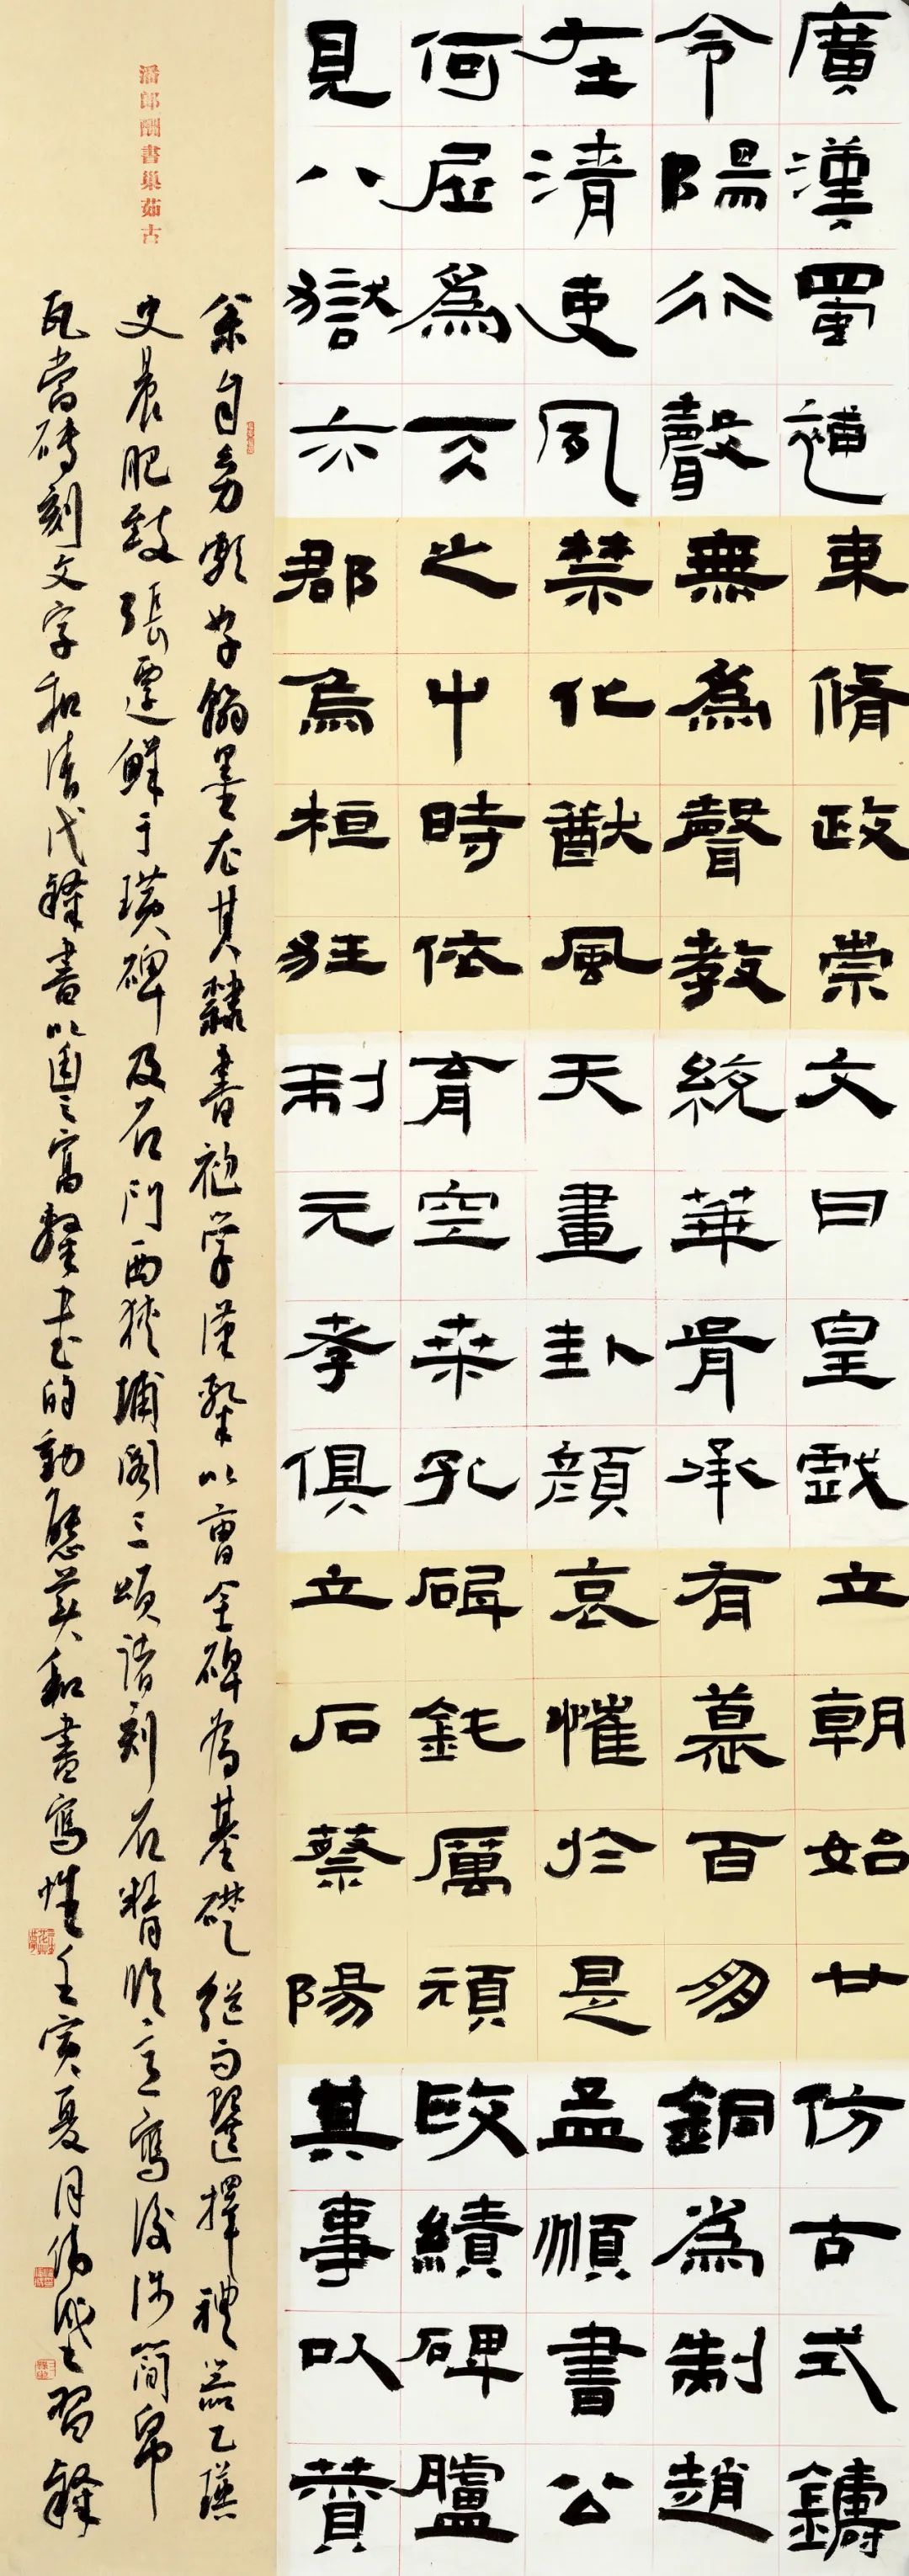 廣漢蜀
令陽行聲
在清使
何屈爲
見八嶽六
東脩政崇
無為聲教
禁化猷風
之中時依
郡烏桓狂
文曰皇戲
統華胥承
天畫卦顏
育空桑孔
制元孝俱
立朝始廿
有慕百
哀慛於是
碑鈍厲頑
立石蔡陽
仿古式鑄
銅爲制趙
孟頫書公
績碑臚
其事以贊
潘郎酬書巢茹古
余自好翰墨尤其隸書初學漢隸以曹全碑為基礎繼而選擇禮器乙瑛
史晨肥致張遷鮮于璜碑及石門西狹郙閣三頌諸刻石精臨意寫後涉簡帛
瓦當磚刻文字和清代隸書以隸書的動態美和書寫性壬寅夏月偉習隸